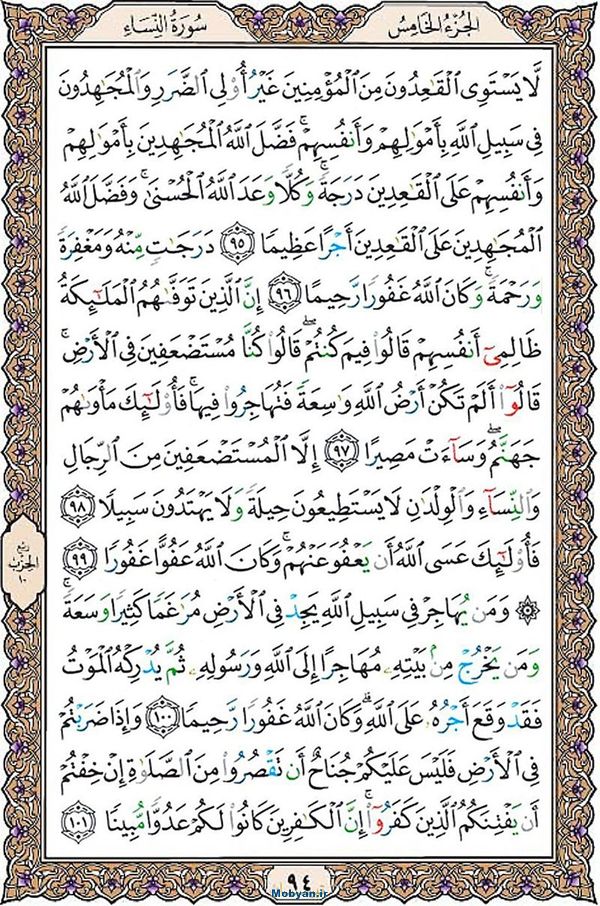 الجُزءُ الخَامِسُ
سُورَةُ النِّسَاءِ
لَّا يَسْتَوِي الْقَاعِدُونَ مِنَ الْمُؤْمِنِينَ غَيْرُ أُوْلِي الضَّرَرِ وَالْمُجَاهِدُونَ
فِي سَبِيلِ اللَّهِ بِأَمْوَالِهِمْ وَأَنفُسِهِمْ ۚ فَضَّلَ اللَّهُ الْمُجَاهِدِينَ بِأَمْوَالِهِمْ
وَأَنفُسِهِمْ عَلَى الْقَاعِدِينَ دَرَجَةً ۚ وَكُلًّا وَعَدَ اللَّهُ الْحُسْنَىٰ ۚ وَفَضَّلَ اللَّهُ
الْمُجَاهِدِينَ عَلَى الْقَاعِدِينَ أَجْرًا عَظِيمًا ﴿٩٥﴾ دَرَجَاتٍ مِّنْهُ وَمَغْفِرَةً
وَرَحْمَةً ۚ وَكَانَ اللَّهُ غَفُورًا رَّحِيمًا ﴿٩٦﴾ إِنَّ الَّذِينَ تَوَفَّاهُمُ الْمَلَائِكَةُ
ظَالِمِي أَنفُسِهِمْ قَالُوا فِيمَ كُنتُمْ ۖ قَالُوا كُنَّا مُسْتَضْعَفِينَ فِي الْأَرْضِ ۚ
قَالُوا أَلَمْ تَكُنْ أَرْضُ اللَّهِ وَاسِعَةً فَتُهَاجِرُوا فِيهَا ۚ فَأُولَٰئِكَ مَأْوَاهُمْ
جَهَنَّمُ ۖ وَسَاءَتْ مَصِيرًا ﴿٩٧﴾ إِلَّا الْمُسْتَضْعَفِينَ مِنَ الرِّجَالِ
وَالنِّسَاءِ وَالْوِلْدَانِ لَا يَسْتَطِيعُونَ حِيلَةً وَلَا يَهْتَدُونَ سَبِيلًا ﴿٩٨﴾
فَأُولَٰئِكَ عَسَى اللَّهُ أَن يَعْفُوَ عَنْهُمْ ۚ وَكَانَ اللَّهُ عَفُوًّا غَفُورًا ﴿٩٩﴾
۞ وَمَن يُهَاجِرْ فِي سَبِيلِ اللَّهِ يَجِدْ فِي الْأَرْضِ مُرَاغَمًا كَثِيرًا وَسَعَةً ۚ
وَمَن يَخْرُجْ مِن بَيْتِهِ مُهَاجِرًا إِلَى اللَّهِ وَرَسُولِهِ ثُمَّ يُدْرِكْهُ الْمَوْتُ
فَقَدْ وَقَعَ أَجْرُهُ عَلَى اللَّهِ ۗ وَكَانَ اللَّهُ غَفُورًا رَّحِيمًا ﴿١٠٠﴾ وَإِذَا ضَرَبْتُمْ
فِي الْأَرْضِ فَلَيْسَ عَلَيْكُمْ جُنَاحٌ أَن تَقْصُرُوا مِنَ الصَّلَاةِ إِنْ خِفْتُمْ
أَن يَفْتِنَكُمُ الَّذِينَ كَفَرُوا ۚ إِنَّ الْكَافِرِينَ كَانُوا لَكُمْ عَدُوًّا مُّبِينًا ﴿١٠١﴾
ربع
الحزب
١٠
٩٤
Mobyan.ir